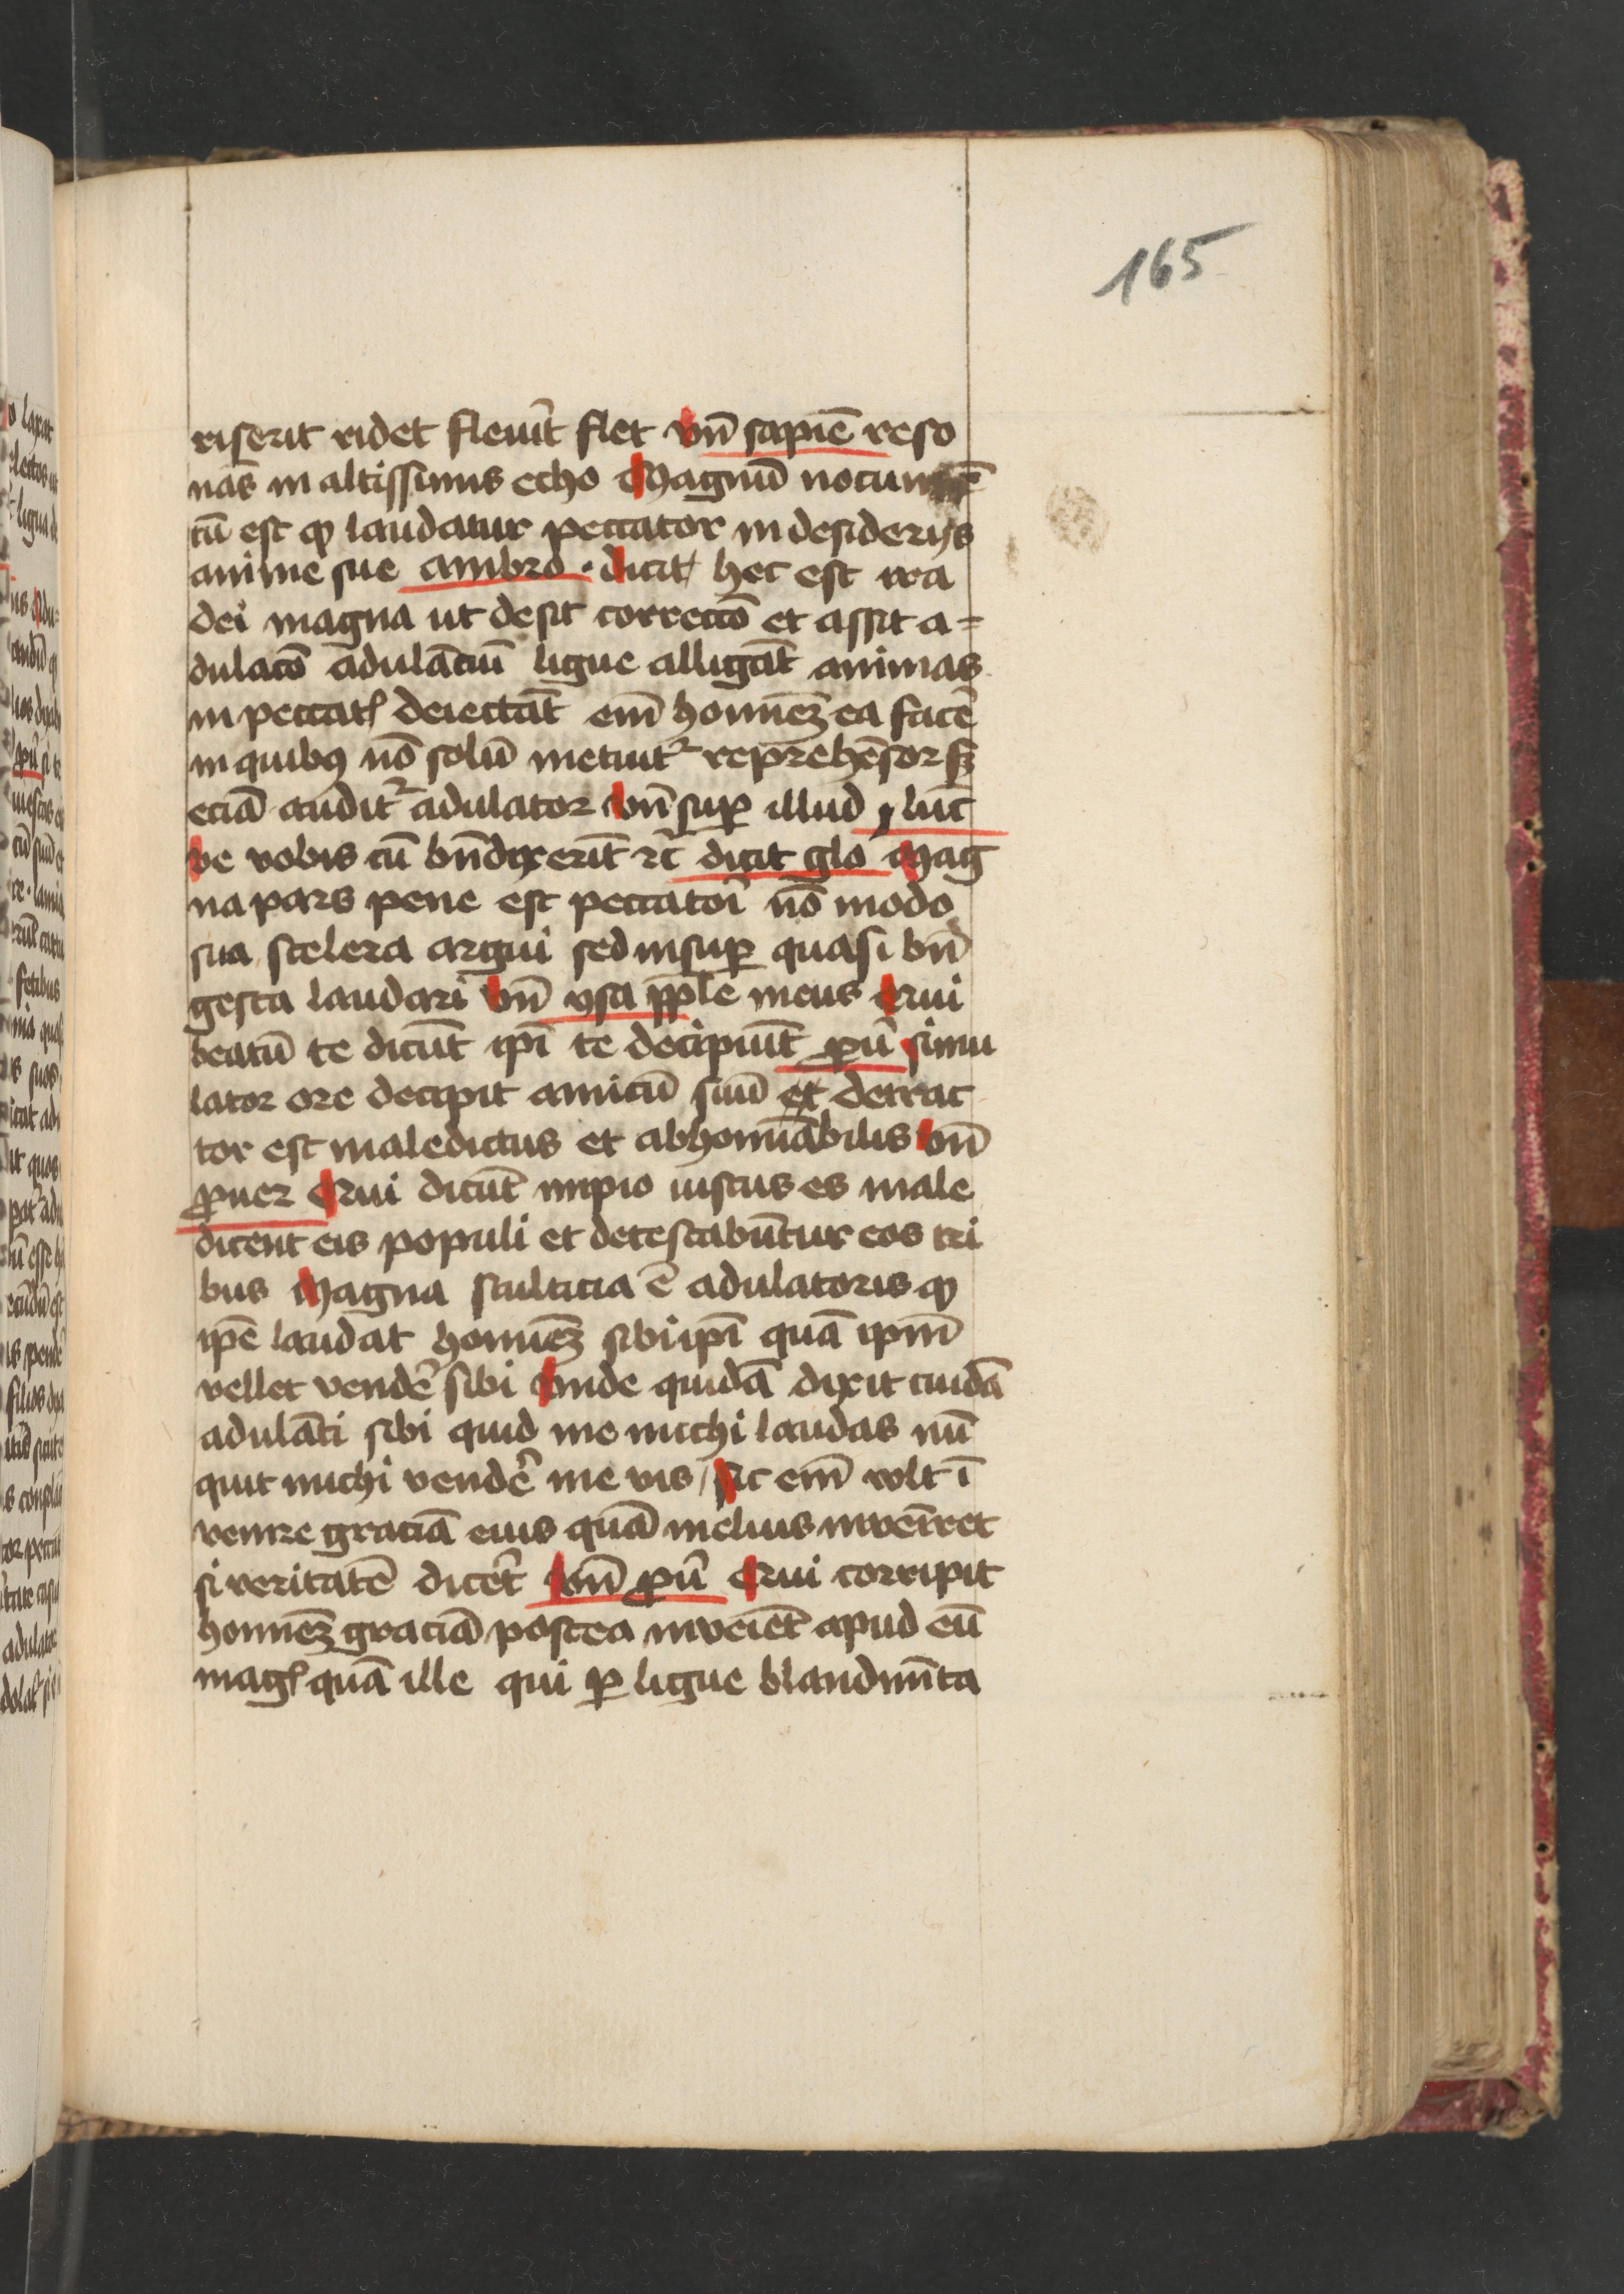 165
riserit ridet fleuit̄ flet vn̄ sapiē reso
nās in altissimis echo Magnū nocum
tū est ꝙ laudatur peccator in desiderijs
anime sue ambro · dicit hec est ira
dei magna ut desit correcc̄o et assit a=
dulac̄o adulāciū ligue alligāt animas
in peccatꝭ delectāt em̄ hominē ea facē
in quibꝰ nō solū metuitᷣ reprehēsor sꝫ
eciā auditᷣ adulator vn̄ suꝑ illud luc̄
ve vobis cū bn̄dixerīt ⁊c̄ dicit glo Mag
na pars pene est peccatoī nō modo
sua scelera argui sed insuꝑ quasi bn̄
gesta laudari vn̄ ysa pple meus Qui
beatū te dicūt ipī te decipiūt ꝓū simu
lator ore decipit amicū suū et detrac
tor est maledictus et abhomīabilis vn̄
ꝓuer Qui dicūt impio iustus es male
dicent eis populi et detestabūtur eos tri
bus Magna stulticia ē adulatoris ꝙ
ipē laudat hominē sibi ipī quā ipm̄
vellet vendē sibi vnde quidā dixit cuidā
adulāti sibi quid me michi laudas nū
quit michi vendē me vis / sic em̄ volt ī
venire graciā eius quā melius inveīret
si veritatē dicet̄ vn̄ ꝓū Qui corripit
hominē graciā postea inveiet̄ apud eū
magꝭ quā ille qui ꝑ ligue blandim̄ta